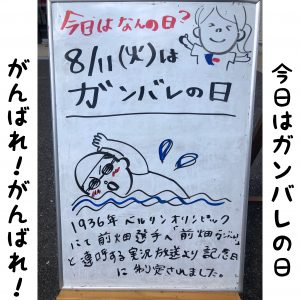 今日はガンバレの日
今日はなんの日?
8/11(火)は
ガンバレの日
1936年 ベルリンオリンピック
にて前畑選手へ「前畑ガンバレ」
と連呼する実況放送より記念日
に制定されました。
がんばれ!がんばれ!